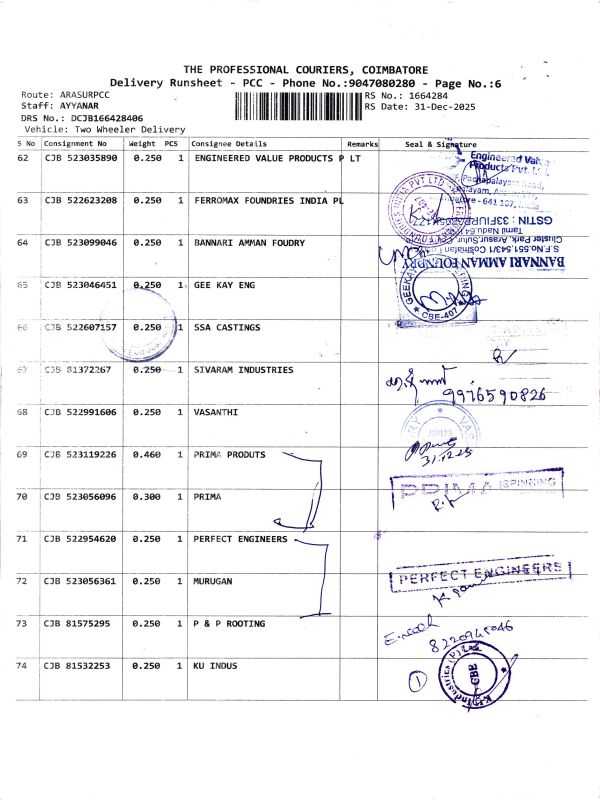 THE PROFESSIONAL COURIERS, COIMBATORE
Delivery Runsheet - PCC - Phone No.:9047080280 - Page No.:6
Route: ARASURPCC
RS No.: 1664284
Staff: AYYANAR
RS Date: 31-Dec-2025
DRS No.: DCJB166428406
Vehicle: Two Wheeler Delivery
S No Consignment No Weight PCS Consignee Details Remarks Seal & Signature
62 CJB 523035890 0.250 1 ENGINEERED VALUE PRODUCTS P LT
Engineered Value
Products Pvt. Ltd.
63 CJB 522623208 0.250 1 FERROMAX FOUNDRIES INDIA PL
64 CJB 523099046 0.250 1 BANNARI AMMAN FOUDRY
BANNARI AMMAN FOUNDRY
65 CJB 523046451 0.250 1 GEE KAY ENG
CBE-407
66 CJB 522607157 0.250 1 SSA CASTINGS
67 CJB 81372267 0.250 1 SIVARAM INDUSTRIES
9976590826
68 CJB 522991606 0.250 1 VASANTHI
31.12.25
69 CJB 523119226 0.460 1 PRIMA PRODUTS
PRIMA SPINNING
70 CJB 523056096 0.300 1 PRIMA
71 CJB 522954620 0.250 1 PERFECT ENGINEERS
PERFECT ENGINEERS
72 CJB 523056361 0.250 1 MURUGAN
73 CJB 81575295 0.250 1 P & P ROOTING
74 CJB 81532253 0.250 1 KU INDUS
1
CBE